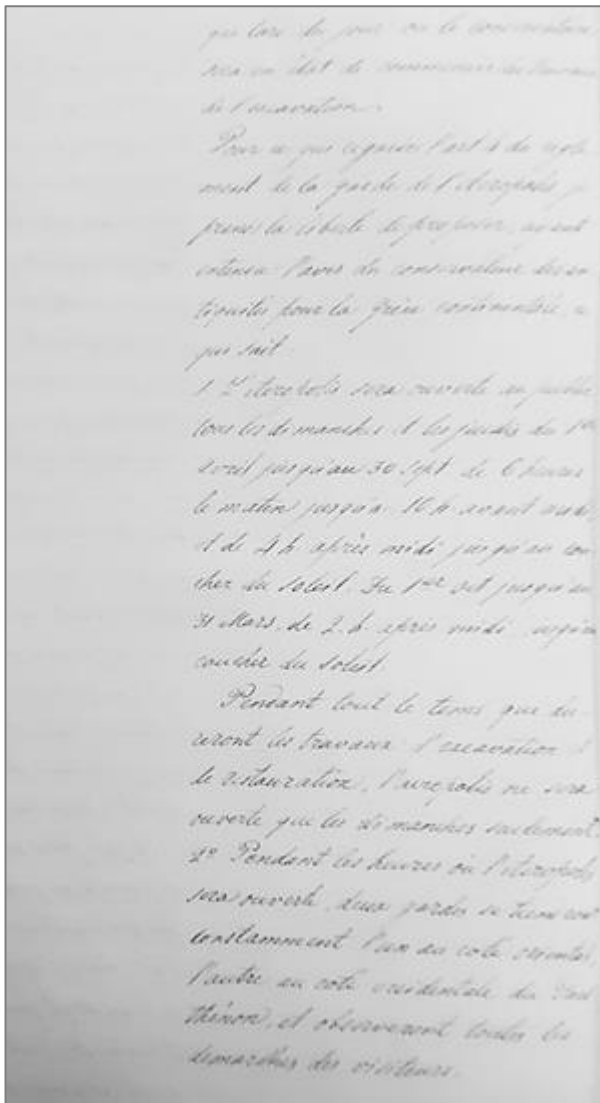 du jour où le conservateur
sera en état de commencer les travaux
de l'excavation.
Pour ce qui regarde l'art. du règle-
ment de la garde de l'Acropolis je
prens la liberté de proposer, avant
entendu l'avis du conservateur des an
tiquités pour la Grèce continentale, ce
qui suit
1 L'Acropolis sera ouverte au public
tous les dimanches et les jeudis du 1er
avril jusqu'au 30 Sept. de 6 heures
le matin jusqu'à 10 h. avant midi,
et de 4 h. après midi jusqu'au cou
cher du soleil. Du 1er Oct jusqu'au
31 Mars, de 2 h. après midi jusqu'au
coucher du soleil
Pendant tout le tems que du-
reront les travaux d'excavation et
de restauration, l'acropolis ne sera
ouverte que les dimanches seulement.
2° Pendant les heures où l'Acropolis
sera ouverte, deux gardes se tiendront
constamment l'un au coté oriental,
l'autre au coté occidentale du Par
thénon, et observeront toutes les
demarches des visiteurs.